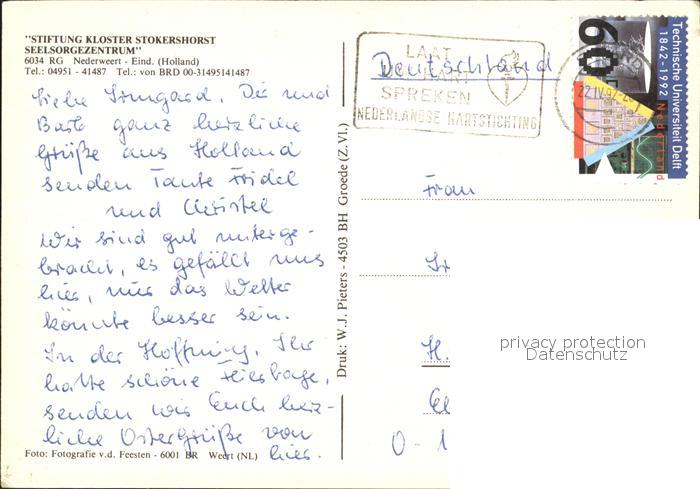 "STIFTUNG KLOSTER STOKERSHORST
SEELSORGEZENTRUM"
6034 RG Nederweert - Eind. (Holland)
Tel.: 04951 - 41487 Tel.: von BRD 00-31495141487
Liebe Irmgard, Dir und
Barb ganz herzliche
Grüße aus Holland
senden Tante Fridel
und Christel
Wir sind gut unterge-
bracht, es gefällt uns
hier, nur das Wetter
könnte besser sein.
In der Hoffnung, Ihr
hatte schöne Feiertage,
senden wir Euch herz-
liche Ostergrüße von
hier.
Foto: Fotografie v.d. Feesten - 6001 BR Weert (NL)
Druk: W.J. Pieters - 4503 BH Groede (Z.Vl.)
LAAT
SPREKEN
NEDERLANDSE HARTSTICHTING
Deutschland
22.IV.92
60
Technische Universiteit Delft
1842-1992
Nederland
Frau
Ir
H.
O - 1
privacy protection
Datenschutz